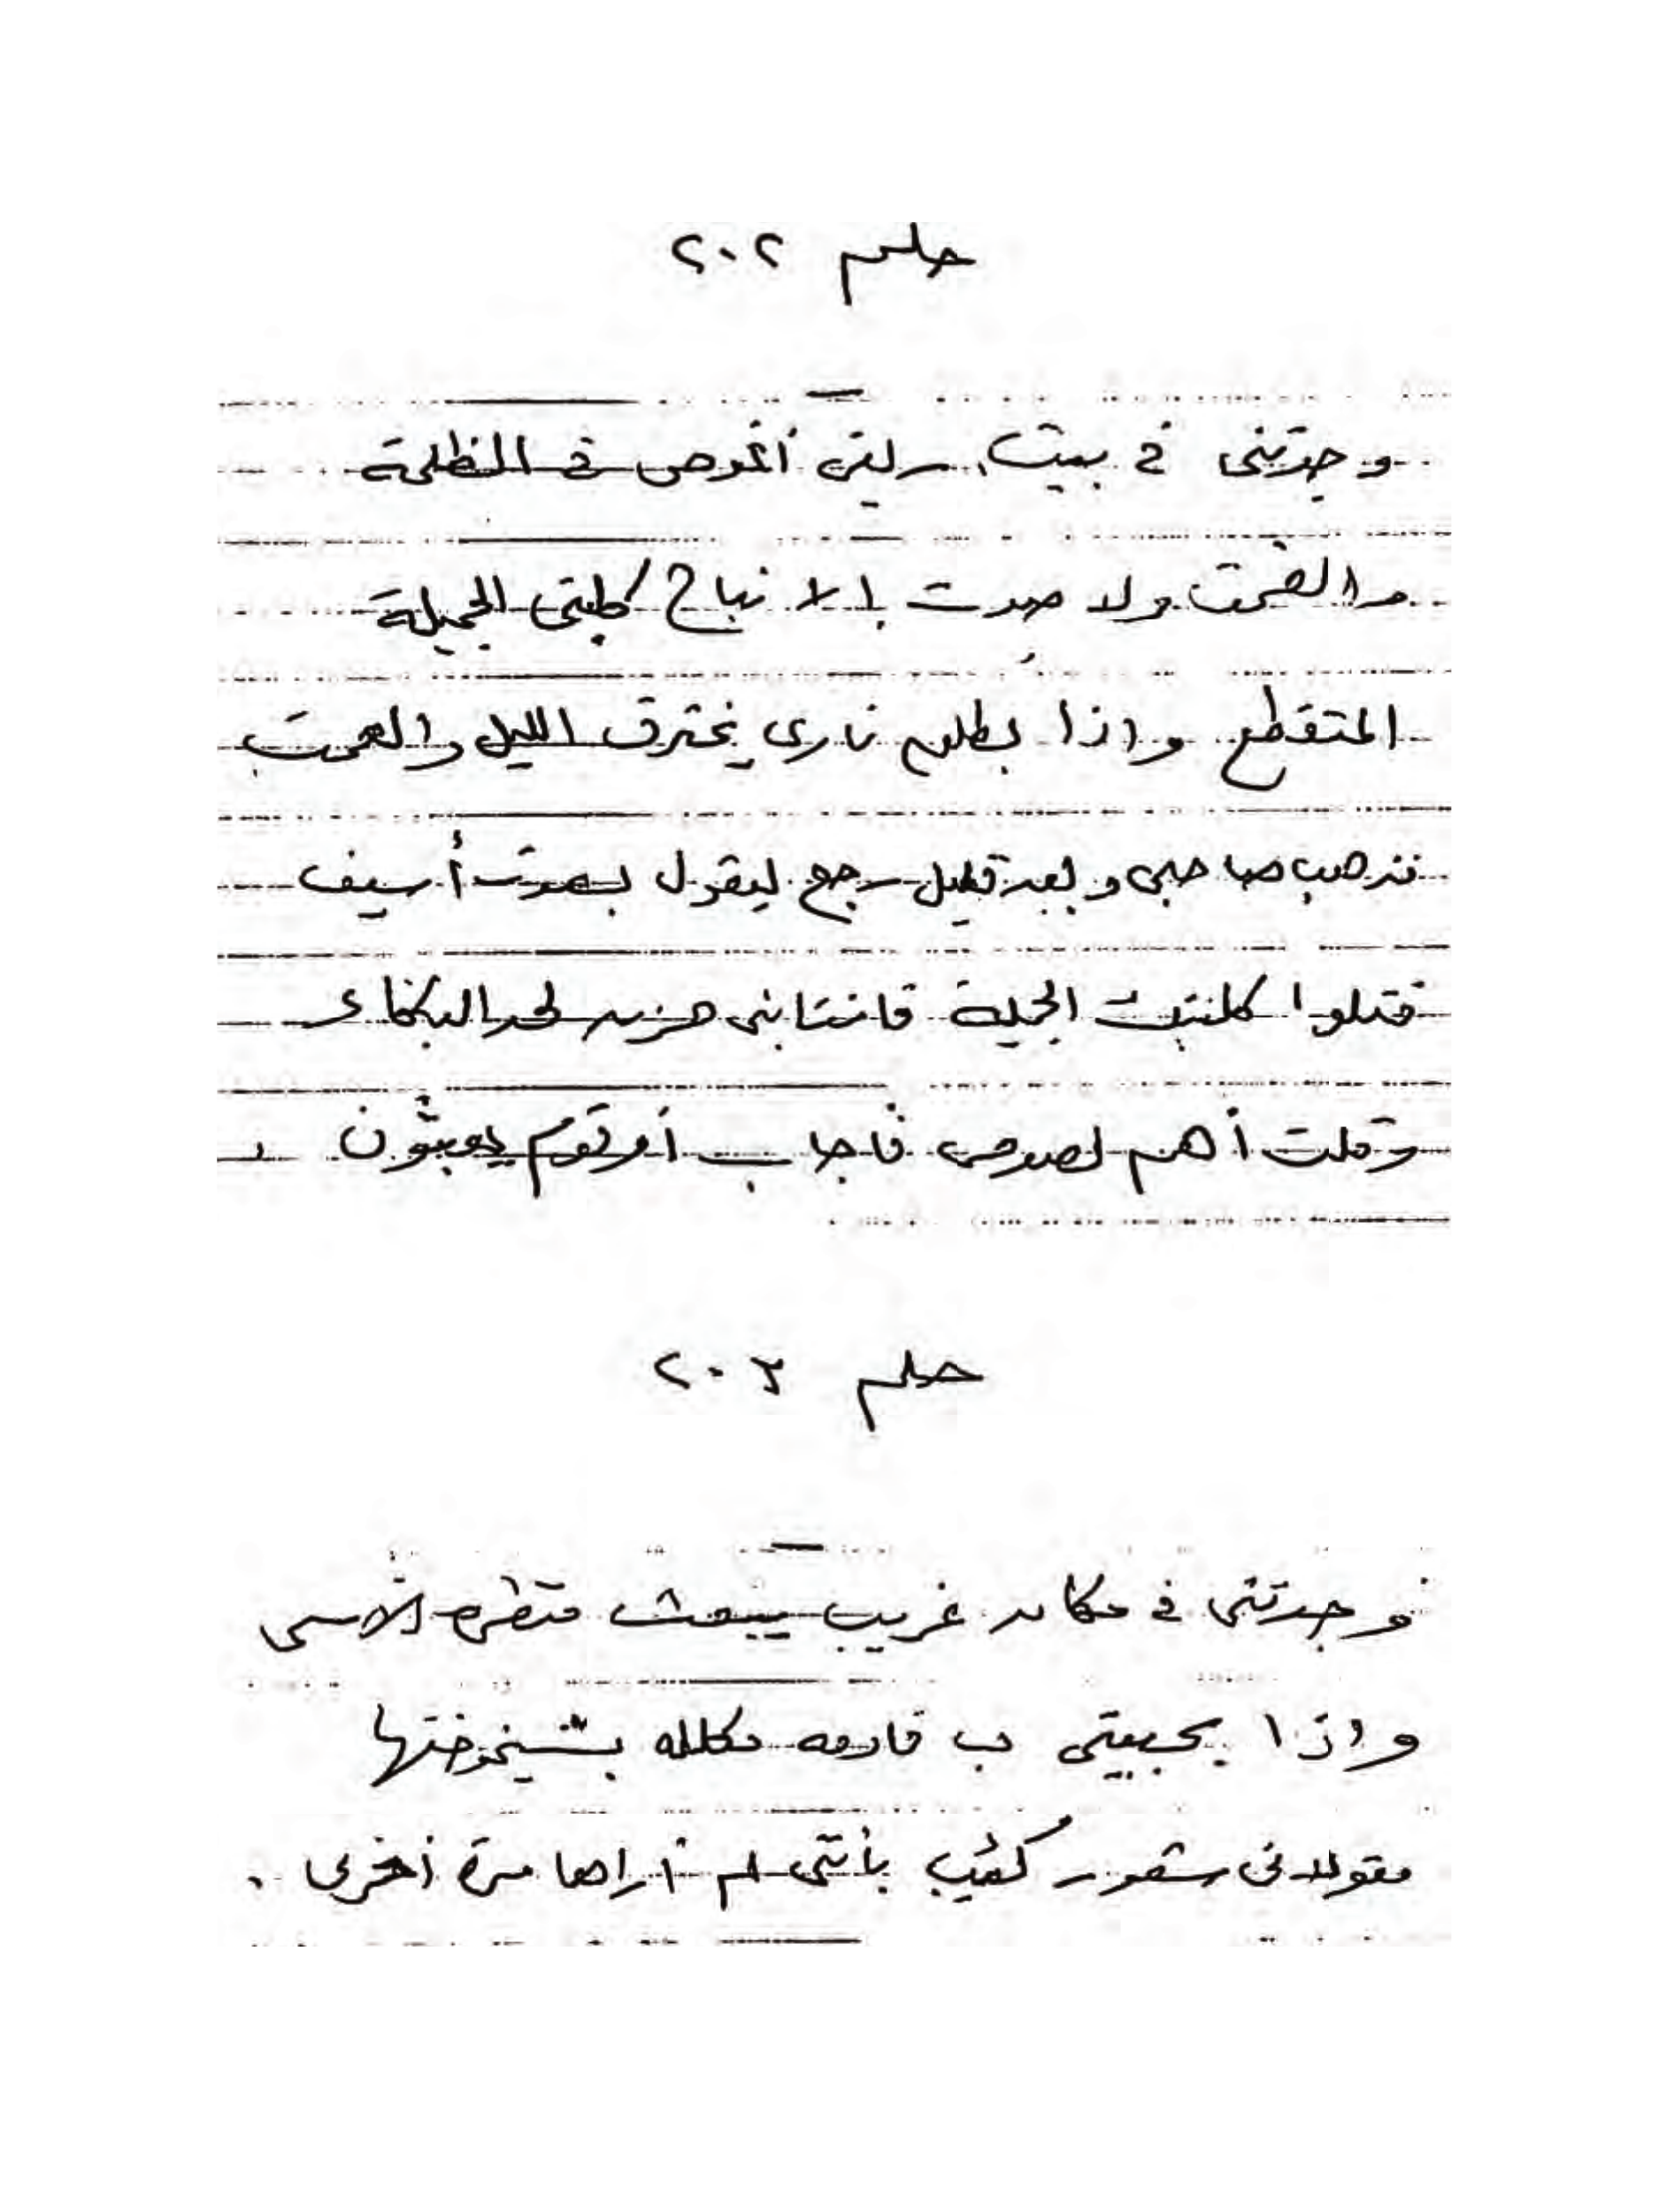 حلم ٢٠٢
وجدتنى فى بيت ريفى أغوص فى الظلمة
والصمت ولا صوت إلا نباح كلبتى الجميلة
المتقطع واذا بطلق نارى يخترق الليل والصمت
فذهب صاحبى وبعد قليل رجع ليقول بصوت أسيف
قتلوا كلبتك الجميلة فانتابنى حزن لحد البكاء
وقلت أهم لصوص فأجاب أو قوم يعبثون .
حلم ٢٠٣
وجدتنى فى مكان غريب يبعث منظره الأسى
واذا بحبيبتى ب قادمه مكلله بشيخوختها
شعور كئيب بأننى لم أراها مرة أخرى .